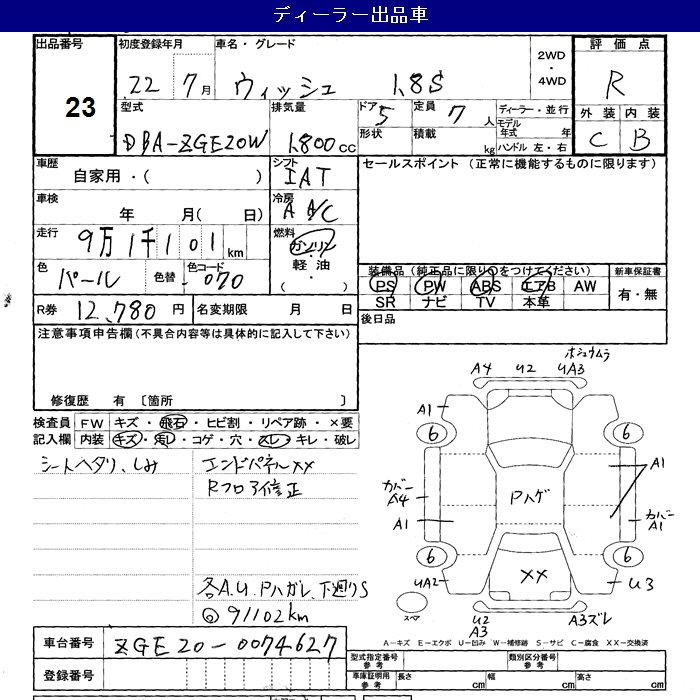 ディーラー出品車
出品番号 初度登録年月 車名・グレード 評価点
23 22 7月 ウィッシュ 1.8S 2WD・4WD R
型式 排気量 ドア 5 定員 7人 ディーラー・並行 外装 内装
DBA-ZGE20W 1,800cc 形状 積載 kg モデル年式 年 C B
ハンドル 左・右
車歴 シフト セールスポイント (正常に機能するものに限ります)
自家用・( ) IAT
車検 冷房
年 月( 日) A A/C
走行 燃料
9万1千101km ガソリン
色 色替 色コード 軽油・
パール 070 ( )
装備品(純正品に限り○をつけてください) 新車保証書
PS PW ABS エアB AW 有・無
SR ナビ TV 本革
R券 12,780円 名変期限 月 日 後日品
注意事項申告欄(不具合内容等は具体的に記入して下さい)
修復歴 有 〔箇所 〕
検査員 FW キズ・飛石・ヒビ割・リペア跡・×要
記入欄 内装 キズ・汚レ・コゲ・穴・スレ・キレ・破レ
シートヘタリ、しみ エンドパネルXX
Rフロア修正
各A.U.Pハガレ、下廻りS
◎91102km
車台番号 ZGE20-0074627
登録番号
ホシュウムラ
A4 U2 UA3
A1
6 6
カバーA4 A1
A1 Pハゲ カバーA1
6 6
UA2 XX U3
スペア U2 A3 A3ズレ
A-キズ E-エクボ U-凹み W-補修跡 S-サビ C-腐食 XX-交換済
型式指定番号 参考 類別区分番号 参考
車庫証明用 参考 長さ cm 幅 cm 高さ cm